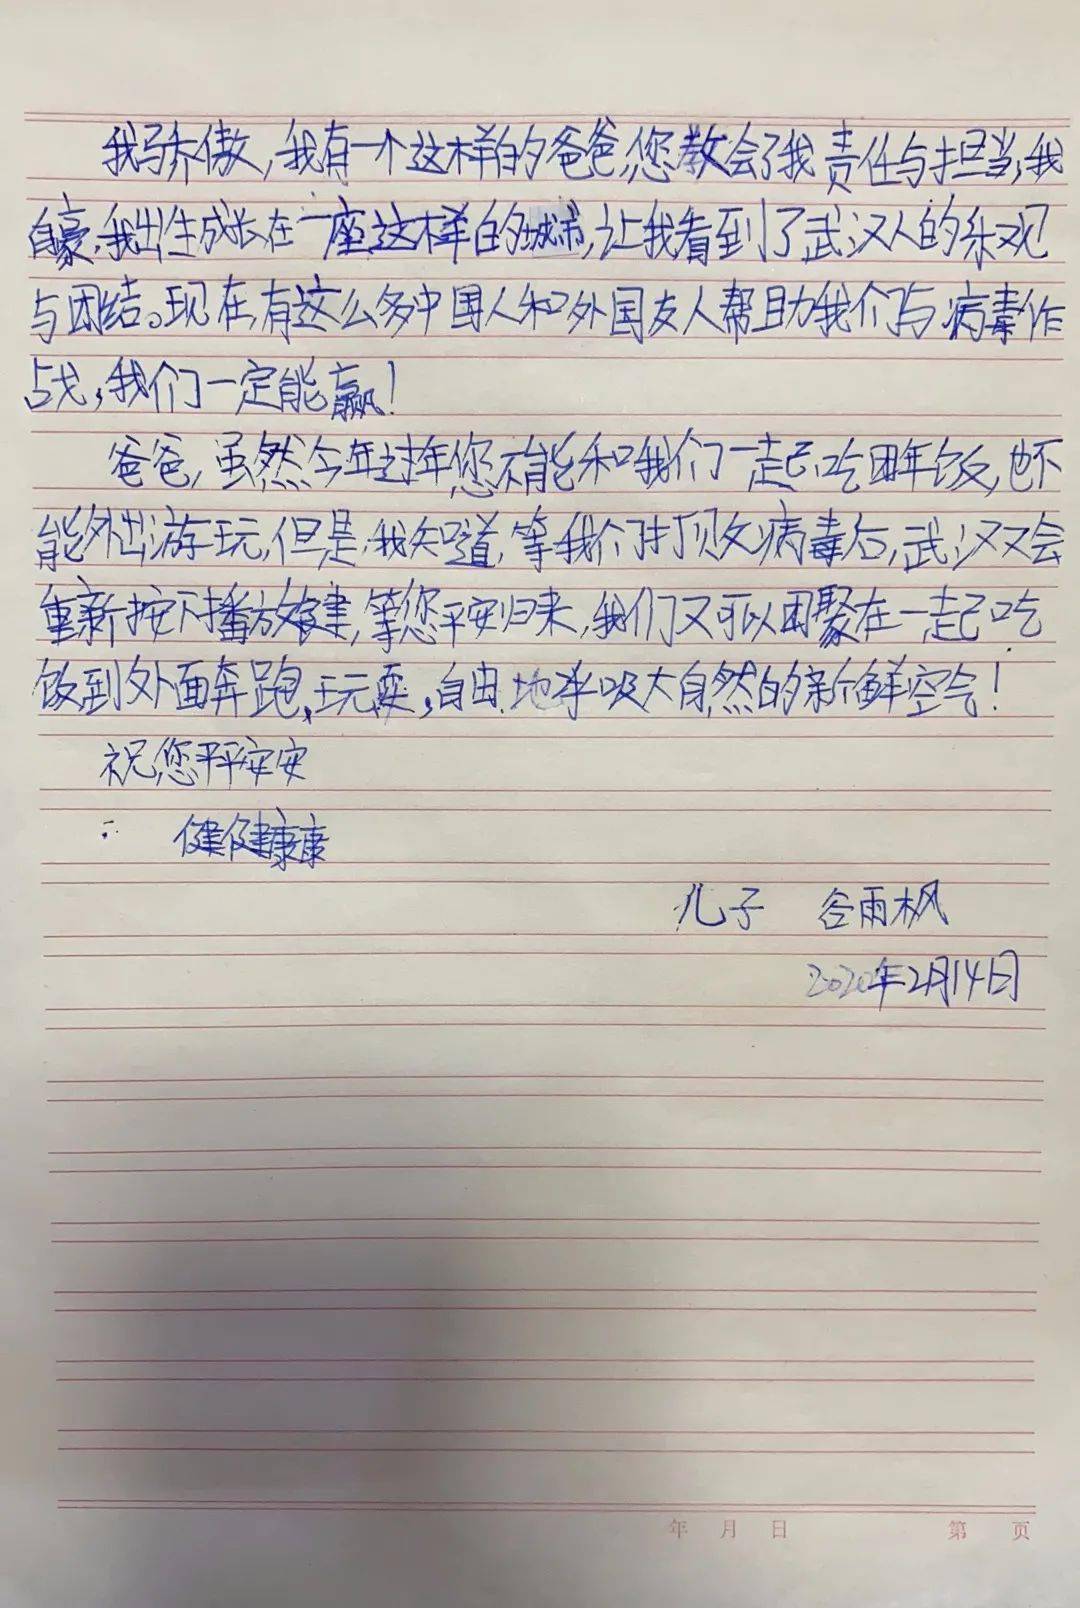 我骄傲,我有一个这样的爸爸,您教会了我责任与担当,我
自豪,我出生成长在一座这样的城市,让我看到了武汉人的乐观
与团结。现在,有这么多中国人和外国友人帮助我们与病毒作
战,我们一定能赢!
爸爸,虽然今年过年您不能和我们一起吃团年饭,也不
能外出游玩,但是,我知道,等我们打败病毒后,武汉又会
重新按下播放键,等您平安归来,我们又可以团聚在一起吃
饭到外面奔跑、玩耍,自由地呼吸大自然的新鲜空气!
祝您平平安安
健健康康
儿子 谷雨枫
2020年2月14日
年 月 日 第 页